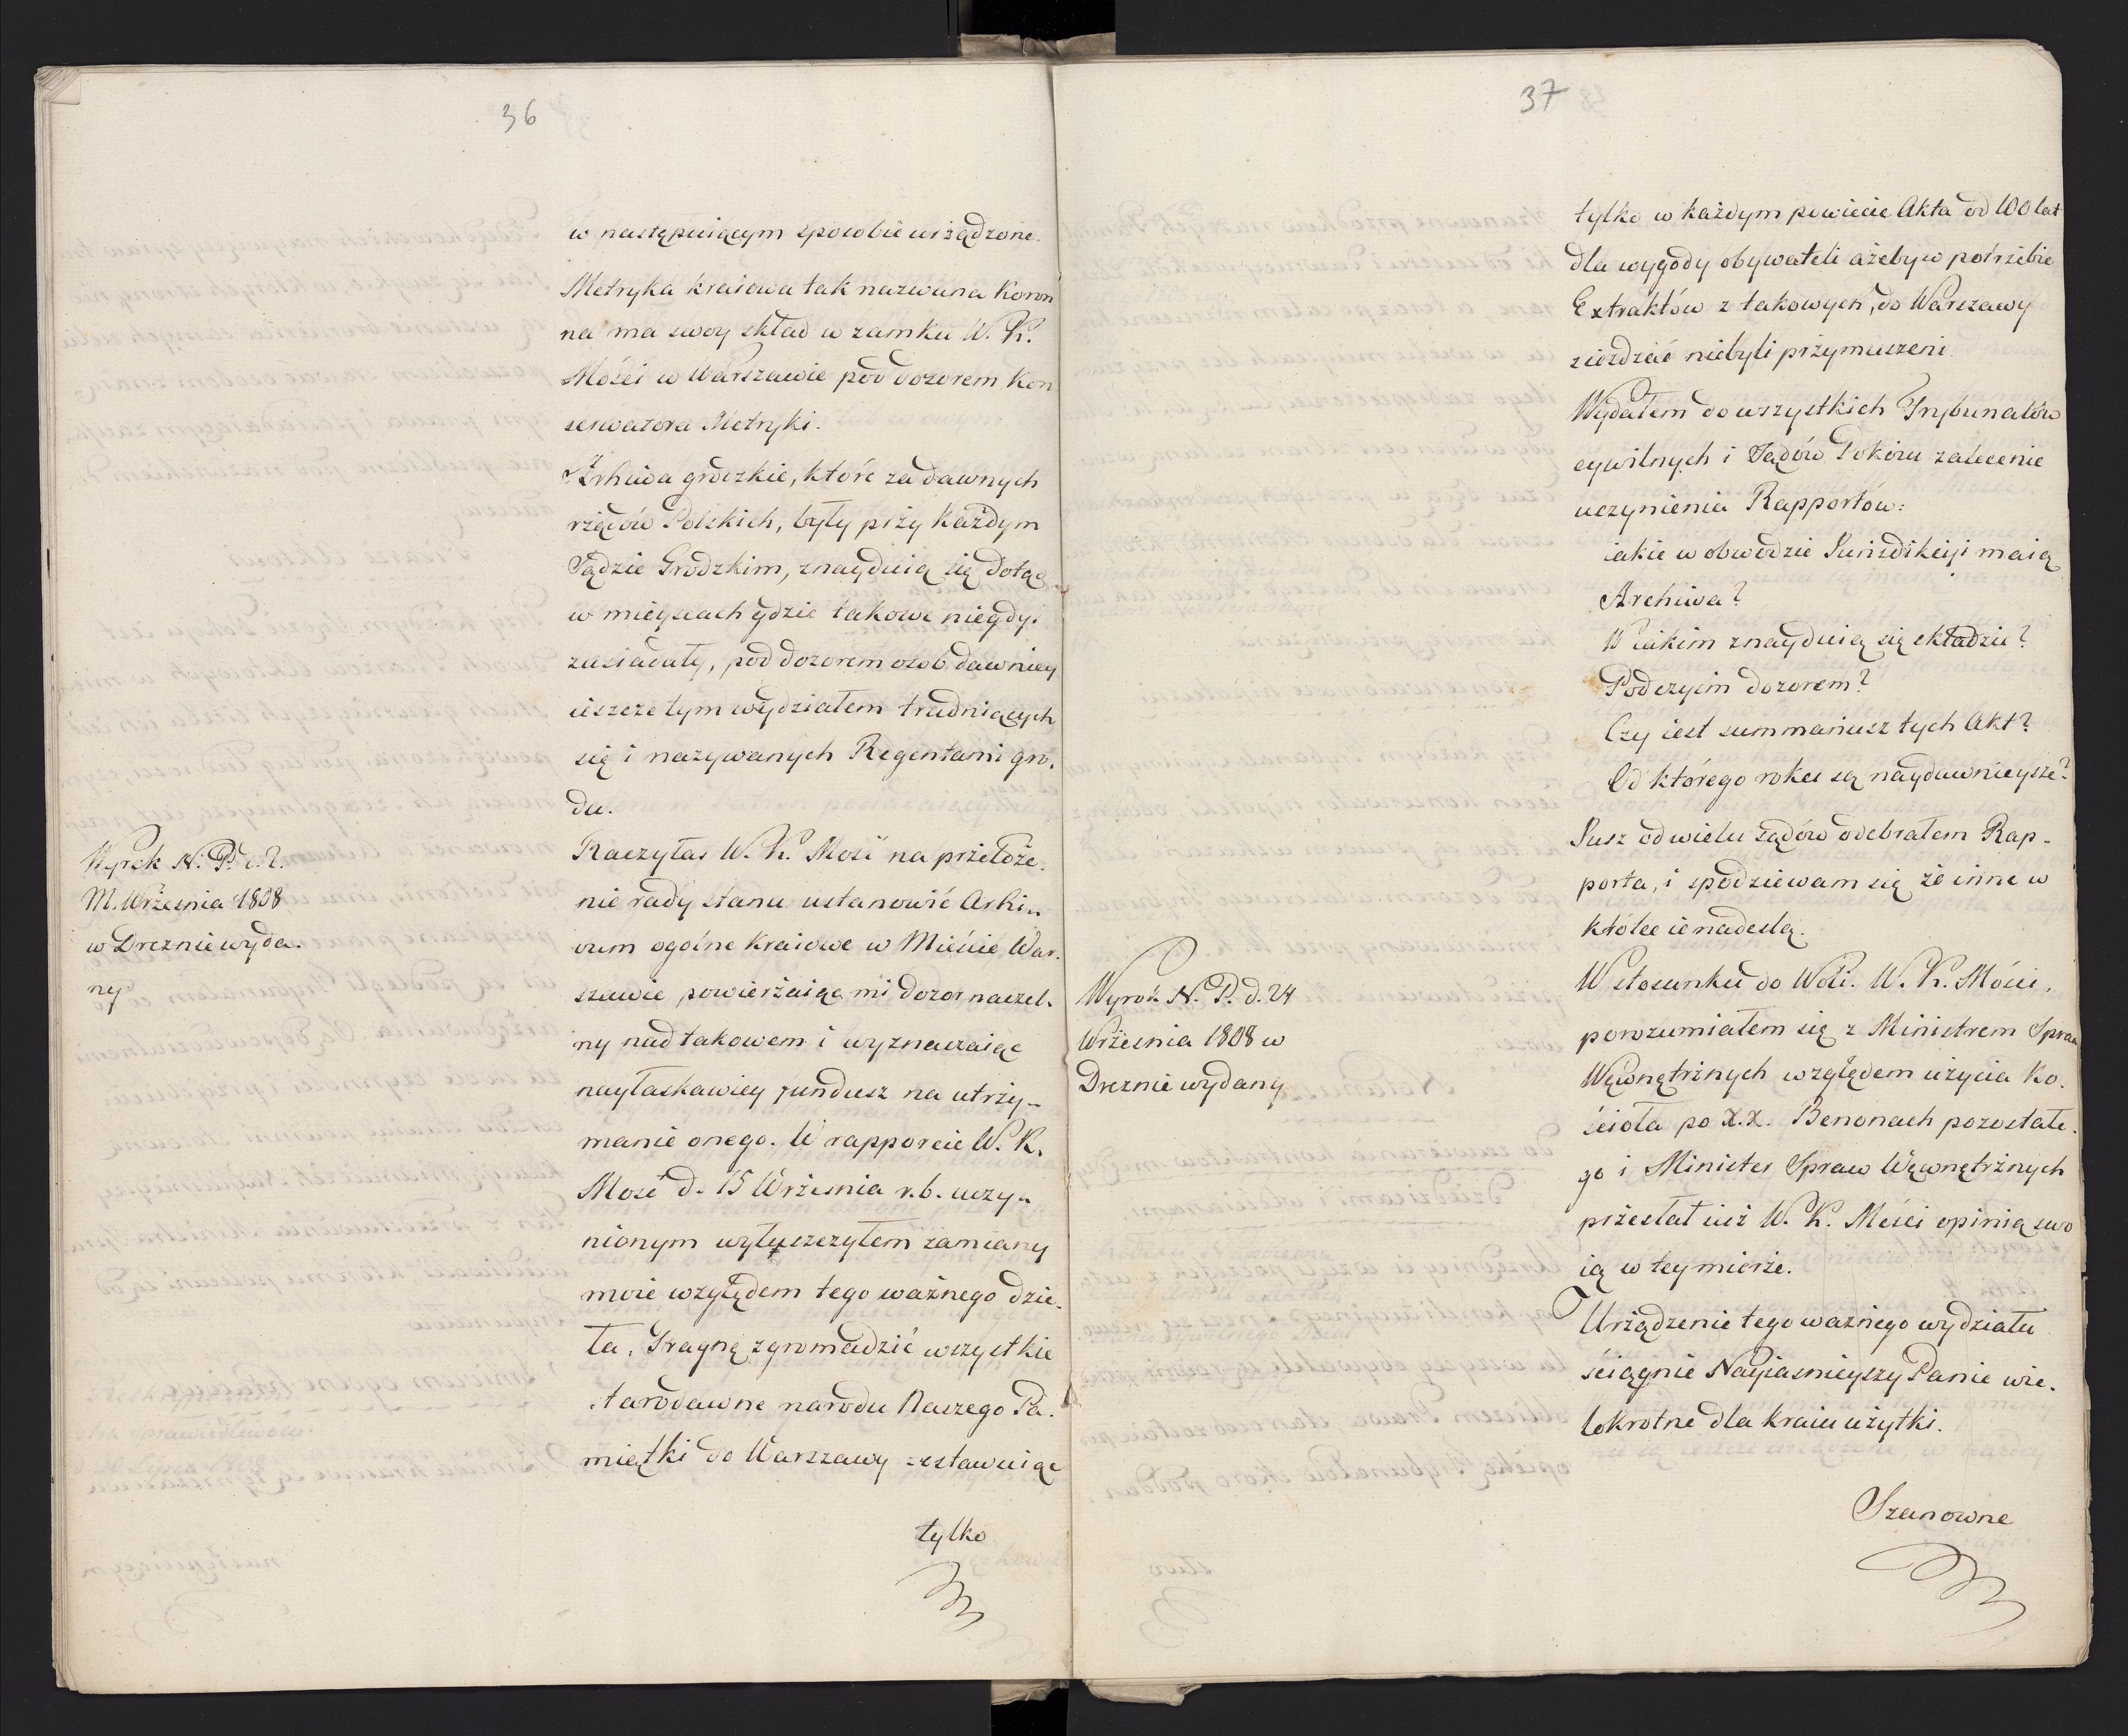 36
w następuiącym sposobie urżądzone.
Metryka kraiowa tak nazwana Koron
na ma swoy skład w zamku W. K.
Mości w Warszawie pod dozorem kon
serwatora Metryki.
Arhiwa grodzkie, które za dawnych
rżądów Polskich, były przy każdym
Sądzie Grodzkim, znayduią się dotąd
w mieyscach gdzie takowe niegdyś
zasiadały, pod dozorem osob dawniey
ieszcze tym wydziałem trudniących
się i nazywanych Regentami gro.
du.
Wyrok N. P. d. 2.
M. Wrżesnia 1808
w Dreznie wyda.
ny
Raczyłas W. K. Mość na przełoże.
nie rady stanu ustanowić Arki„
vum ogólne kraiowe w Mieście War.
szawie, powierżaiąc mi dozor naczel.
ny nad takowem i wyznaczaiąc
nayłaskawiey fundusz na utrzy„
manie onego. W rapporcie W. K.
Mość d. 15 Wrżesnia r. b. uczy„
nionym wyłuszczyłem zamiany
moie względem tego ważnego dzie.
ła, Pragnę zgromadzić wszystkie
starodawne narodu Naszego Pa.
miątki do Warszawy zostawuiąc
tylko
37
tylko w każdym powiecie Akta od 100 lat
dla wygody obywateli ażeby w potrzebie
Extraktów z takowych, do Warszawy
ziezdzać niebyli przymuszeni.
Wydałem do wszystkich Trybunałów
cywilnych i Sądów Pokoiu zalecenie
uczynienia Rapportów:
iakie w obwodzie Jurisdikcyi maią
Archiwa?
W iakim znayduią się składzie?
Pod czyim dozorem?
Czy iest summariusz tych Akt?
Od którego roku są naydawnieysze?
Jusz od wielu sądów odebrałem Rap„
porta, i spodziewam się że inne w
krótce ie nadeslą.
Wyrok N. P. d. 24
Wrżesnia 1808 w
Dreznie wydany
W stosunku do Woli. W. K. Mości,
porozumiałem się z Ministrem Spraw
Wewnętrżnych względem użycia Ko.
ścioła po X.X. Benonach pozostałe.
go i Minister Spraw Wewnętrżnych
przesłał iuż W. K. Mości opinią swo
ią w tey mierże.
Urżądzenie tego ważnego wydziału
ściągnie Nayiasnieyszy Panie wie.
lokrotne dla kraiu użytki.
Szanowne